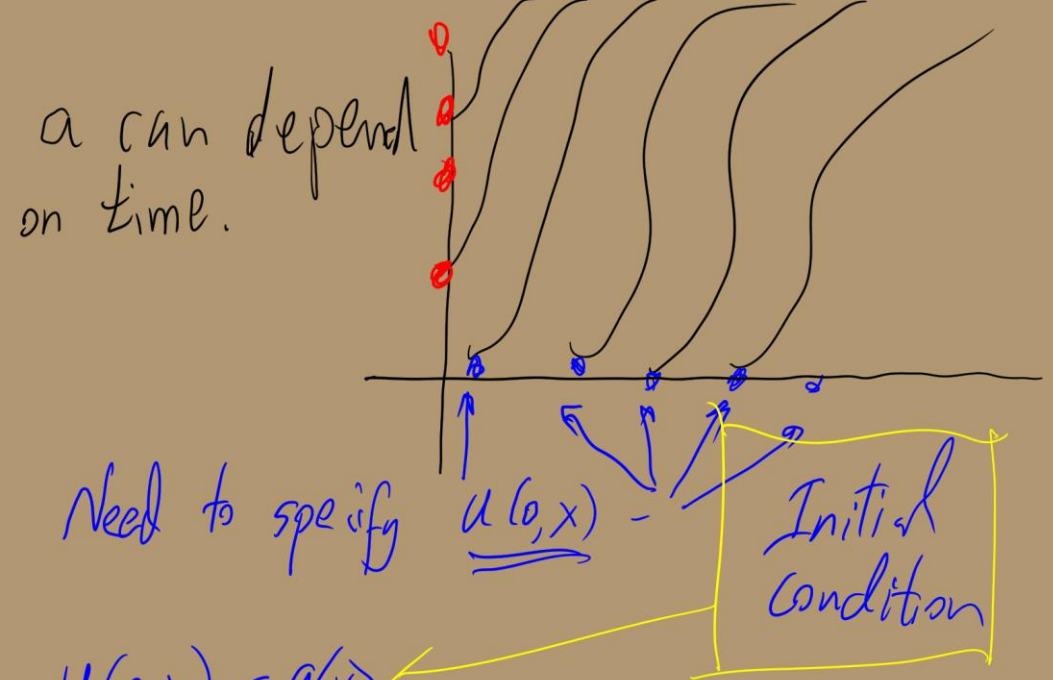 a can depend
on time.
Need to specify u(0,x) -
Initial
condition